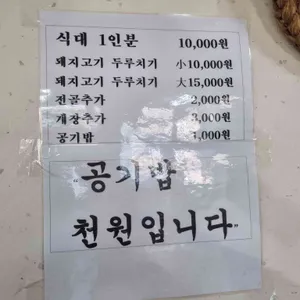 식대 1인분 10,000원
돼지고기 두루치기 小10,000원
돼지고기 두루치기 大15,000원
전골추가 2,000원
개장추가 3,000원
공기밥 1,000원
공기밥
천원입니다